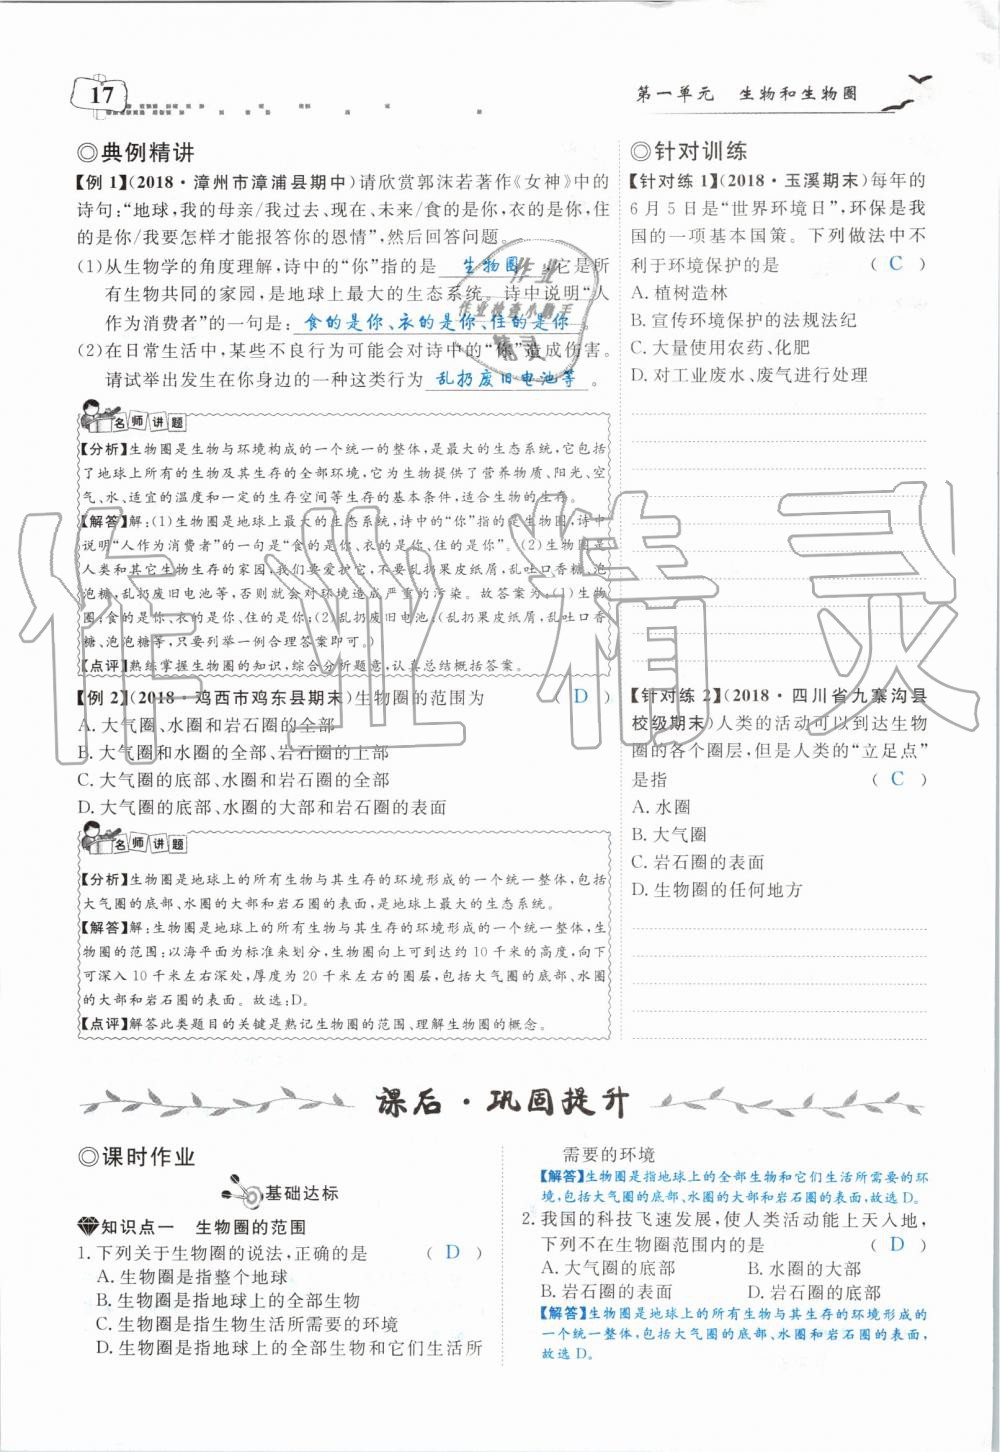 17
第一单元 生物和生物圈
◎典例精讲
【例 1】(2018·漳州市漳浦县期中)请欣赏郭沫若著作《女神》中的
诗句:“地球,我的母亲/我过去、现在、未来/食的是你,衣的是你,住
的是你/我要怎样才能报答你的恩情”,然后回答问题。
(1)从生物学的角度理解,诗中的“你”指的是 生物圈 ,它是所
有生物共同的家园,是地球上最大的生态系统。诗中说明“人
作为消费者”的一句是: 食的是你、衣的是你、住的是你 。
(2)在日常生活中,某些不良行为可能会对诗中的“你”造成伤害。
请试举出发生在你身边的一种这类行为 乱扔废旧电池等 。
名师讲题
【分析】生物圈是生物与环境构成的一个统一的整体,是最大的生态系统,它包括
了地球上所有的生物及其生存的全部环境,它为生物提供了营养物质、阳光、空
气、水、适宜的温度和一定的生存空间等生存的基本条件,适合生物的生存。
【解答】解:(1)生物圈是地球上最大的生态系统,诗中的“你”指的是生物圈,诗中
说明“人作为消费者”的一句是“食的是你、衣的是你、住的是你”。(2)生物圈是
人类和其它生物生存的家园,我们要爱护它,不要乱扔果皮纸屑,乱吐口香糖、泡
泡糖,乱扔废旧电池等,否则就会对环境造成严重的污染。故答案为:(1)生物
圈;食的是你、衣的是你、住的是你;(2)乱扔废旧电池。(乱扔果皮纸屑,乱吐口香
糖、泡泡糖等,只要列举一例合理答案即可。)
【点评】熟练掌握生物圈的知识,综合分析题意,认真总结概括答案。
【例 2】(2018·鸡西市鸡东县期末)生物圈的范围为 ( D )
A. 大气圈、水圈和岩石圈的全部
B. 大气圈和水圈的全部、岩石圈的上部
C. 大气圈的底部、水圈和岩石圈的全部
D. 大气圈的底部、水圈的大部和岩石圈的表面
名师讲题
【分析】生物圈是地球上的所有生物与其生存的环境形成的一个统一整体,包括
大气圈的底部、水圈的大部和岩石圈的表面,是地球上最大的生态系统。
【解答】解:生物圈是地球上的所有生物与其生存的环境形成的一个统一整体,生
物圈的范围:以海平面为标准来划分,生物圈向上可到达约 10 千米的高度,向下
可深入 10 千米左右深处,厚度为 20 千米左右的圈层,包括大气圈的底部、水圈
的大部和岩石圈的表面。故选:D。
【点评】解答此类题目的关键是熟记生物圈的范围、理解生物圈的概念。
◎针对训练
【针对练 1】(2018·玉溪期末)每年的
6 月 5 日是“世界环境日”,环保是我
国的一项基本国策。下列做法中不
利于环境保护的是 ( C )
A. 植树造林
B. 宣传环境保护的法规法纪
C. 大量使用农药、化肥
D. 对工业废水、废气进行处理
【针对练 2】(2018·四川省九寨沟县
校级期末)人类的活动可以到达生物
圈的各个圈层,但是人类的“立足点”
是指 ( C )
A. 水圈
B. 大气圈
C. 岩石圈的表面
D. 生物圈的任何地方
课后·巩固提升
◎课时作业
基础达标
知识点一 生物圈的范围
1. 下列关于生物圈的说法,正确的是 ( D )
A. 生物圈是指整个地球
B. 生物圈是指地球上的全部生物
C. 生物圈是指生物生活所需要的环境
D. 生物圈是指地球上的全部生物和它们生活所
需要的环境
【解答】生物圈是指地球上的全部生物和它们生活所需要的环
境,包括大气圈的底部、水圈的大部和岩石圈的表面,故选 D。
2. 我国的科技飞速发展,使人类活动能上天入地,
下列不在生物圈范围内的是 ( D )
A. 大气圈的底部 B. 水圈的大部
B. 岩石圈的表面 D. 岩石圈的底部
【解答】生物圈是地球上的所有生物与其生存的环境形成的
一个统一整体,包括大气圈的底部、水圈和岩石圈的表面,
故选 D。
作业精灵
作业
作业检查小助手
精灵